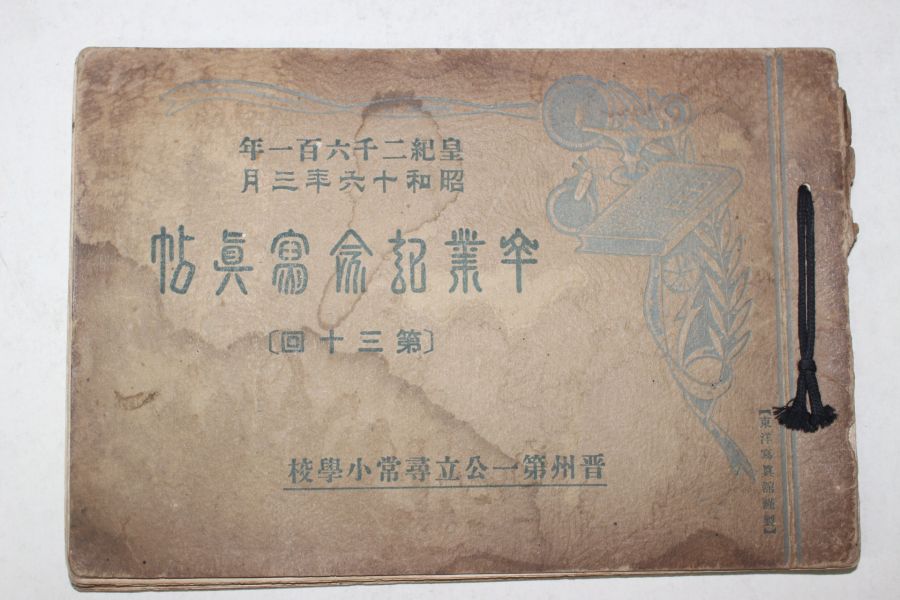 皇紀二千六百一年
昭和十六年三月
卒業記念寫眞帖
〔第三十回〕
晋州第一公立尋常小學校
【東洋寫眞館謹製】